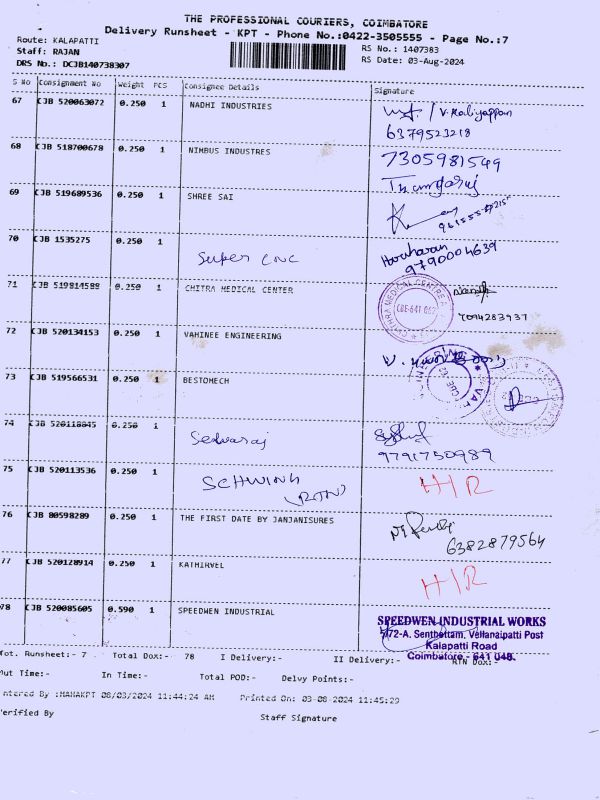 THE PROFESSIONAL COURIERS, COIMBATORE
Delivery Runsheet - KPT - Phone No.:0422-3505555 - Page No.:7
Route: KALAPATTI RS No.: 1407383
Staff: RAJAN RS Date: 03-Aug-2024
DRS No.: DCJB140738307
S No Consignment No Weight PCS Consignee Details Signature
67 CJB 520063072 0.250 1 NADHI INDUSTRIES V.Kaliyappan
6379523218
68 CJB 518700678 0.250 1 NIMBUS INDUSTRES 7305981549
Thangaraj
69 CJB 519689536 0.250 1 SHREE SAI
70 CJB 1535275 0.250 1 Super CNC Hariharan
9790004639
71 CJB 519814588 0.250 1 CHITRA MEDICAL CENTER CHITRA MEDICAL CENTRE
CBE-641 062
7094283937
72 CJB 520134153 0.250 1 VAHINEE ENGINEERING
73 CJB 519566531 0.250 1 BESTOMECH
74 CJB 520118845 0.250 1 Selvaraj
9791750989
75 CJB 520113536 0.250 1 SCHWING H/R
(RTN)
76 CJB 80598289 0.250 1 THE FIRST DATE BY JANJANISURES
6382879564
77 CJB 520128914 0.250 1 KATHIRVEL H/R
78 CJB 520085605 0.590 1 SPEEDWEN INDUSTRIAL SPEEDWEN INDUSTRIAL WORKS
5/72-A, Senthottam, Vellanaipatti Post
Kalapatti Road
Coimbatore - 641 048.
Tot. Runsheet:- 7 Total Dox:- 78 I Delivery:- II Delivery:- RTN Dox:-
Out Time:- In Time:- Total POD:- Delvy Points:-
Entered By :MAHAKPT 08/03/2024 11:44:24 AM Printed On: 03-08-2024 11:45:29
Verified By Staff Signature